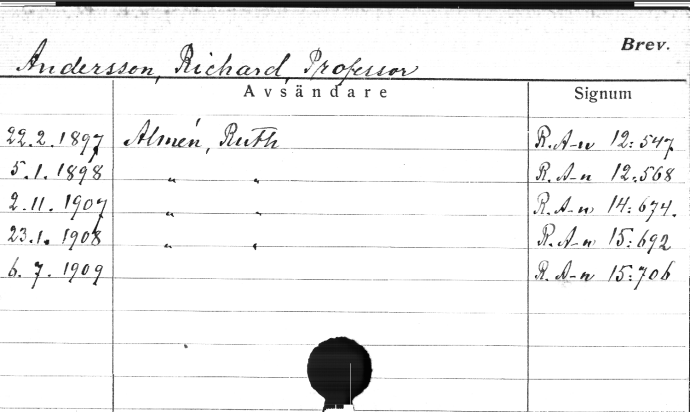 Brev.
Andersson, Richard, Professor
Avsändare Signum
22.2.1897 Almén, Ruth R. A-n 12:547
5.1.1898 " " R. A-n 12:568
2.11.1907 " " R. A-n 14:674.
23.1.1908 " " R. A-n 15:692
6.7.1909 R. A-n 15:706